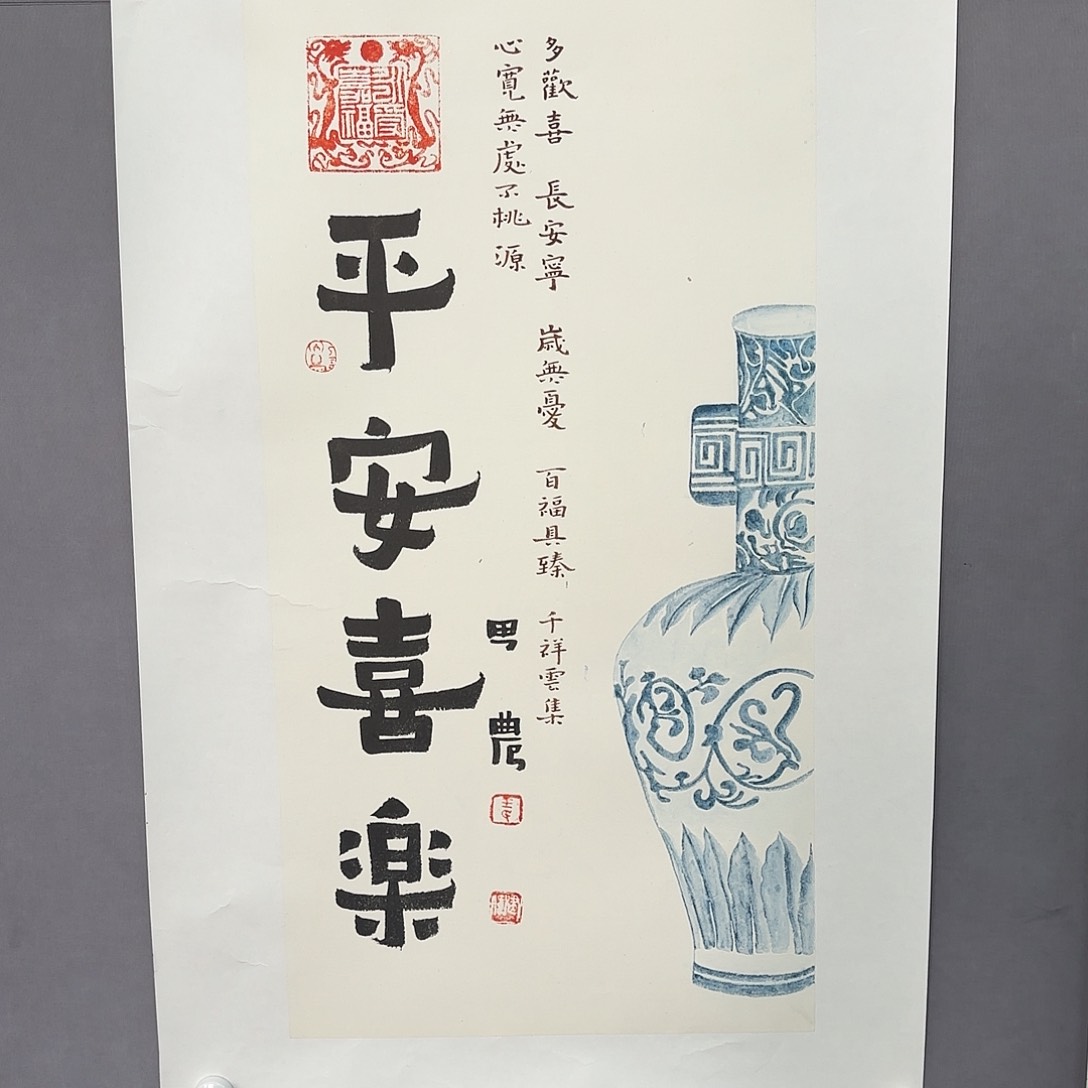 多歡喜 長安寧 歲無憂 百福具臻 千祥雲集
心寬無處不桃源
農
平安喜楽
永受嘉福